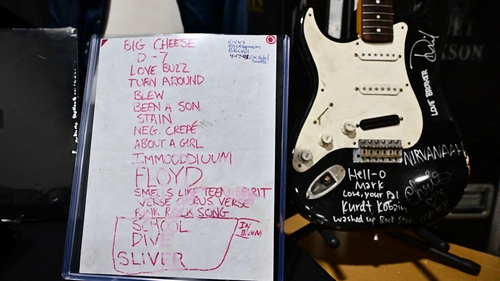 BIG CHEESE
D-7
LOVE BUZZ
TURN AROUND
BLEW
BEEN A SON
STAIN
NEG. CREPÉ
ABOUT A GIRL
IMMODDIUUM
FLOYD
SMELLS LIKE TEEN SPIRIT
VERSE CHORUS VERSE
PUNK ROCK SONG
SCHOOL
DIVE
SLIVER
IN
BLOOM
LOVE BROKER
NIRVANAAAH
Hell-O
Mark
Love, your Pal
Kurdt Kobain
washed up Rock Star